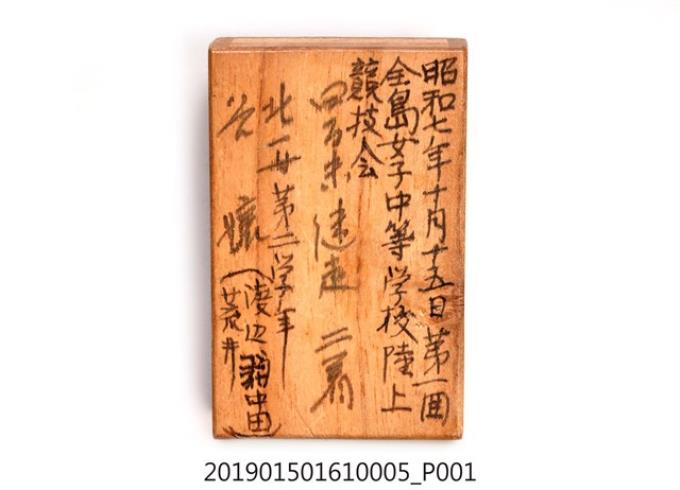 昭和七年十月十五日第一囬
全島女子中等学校陸上
競技会
四百米継走 二着
北一女第二学年
渡辺
荒井
中田
201901501610005_P001